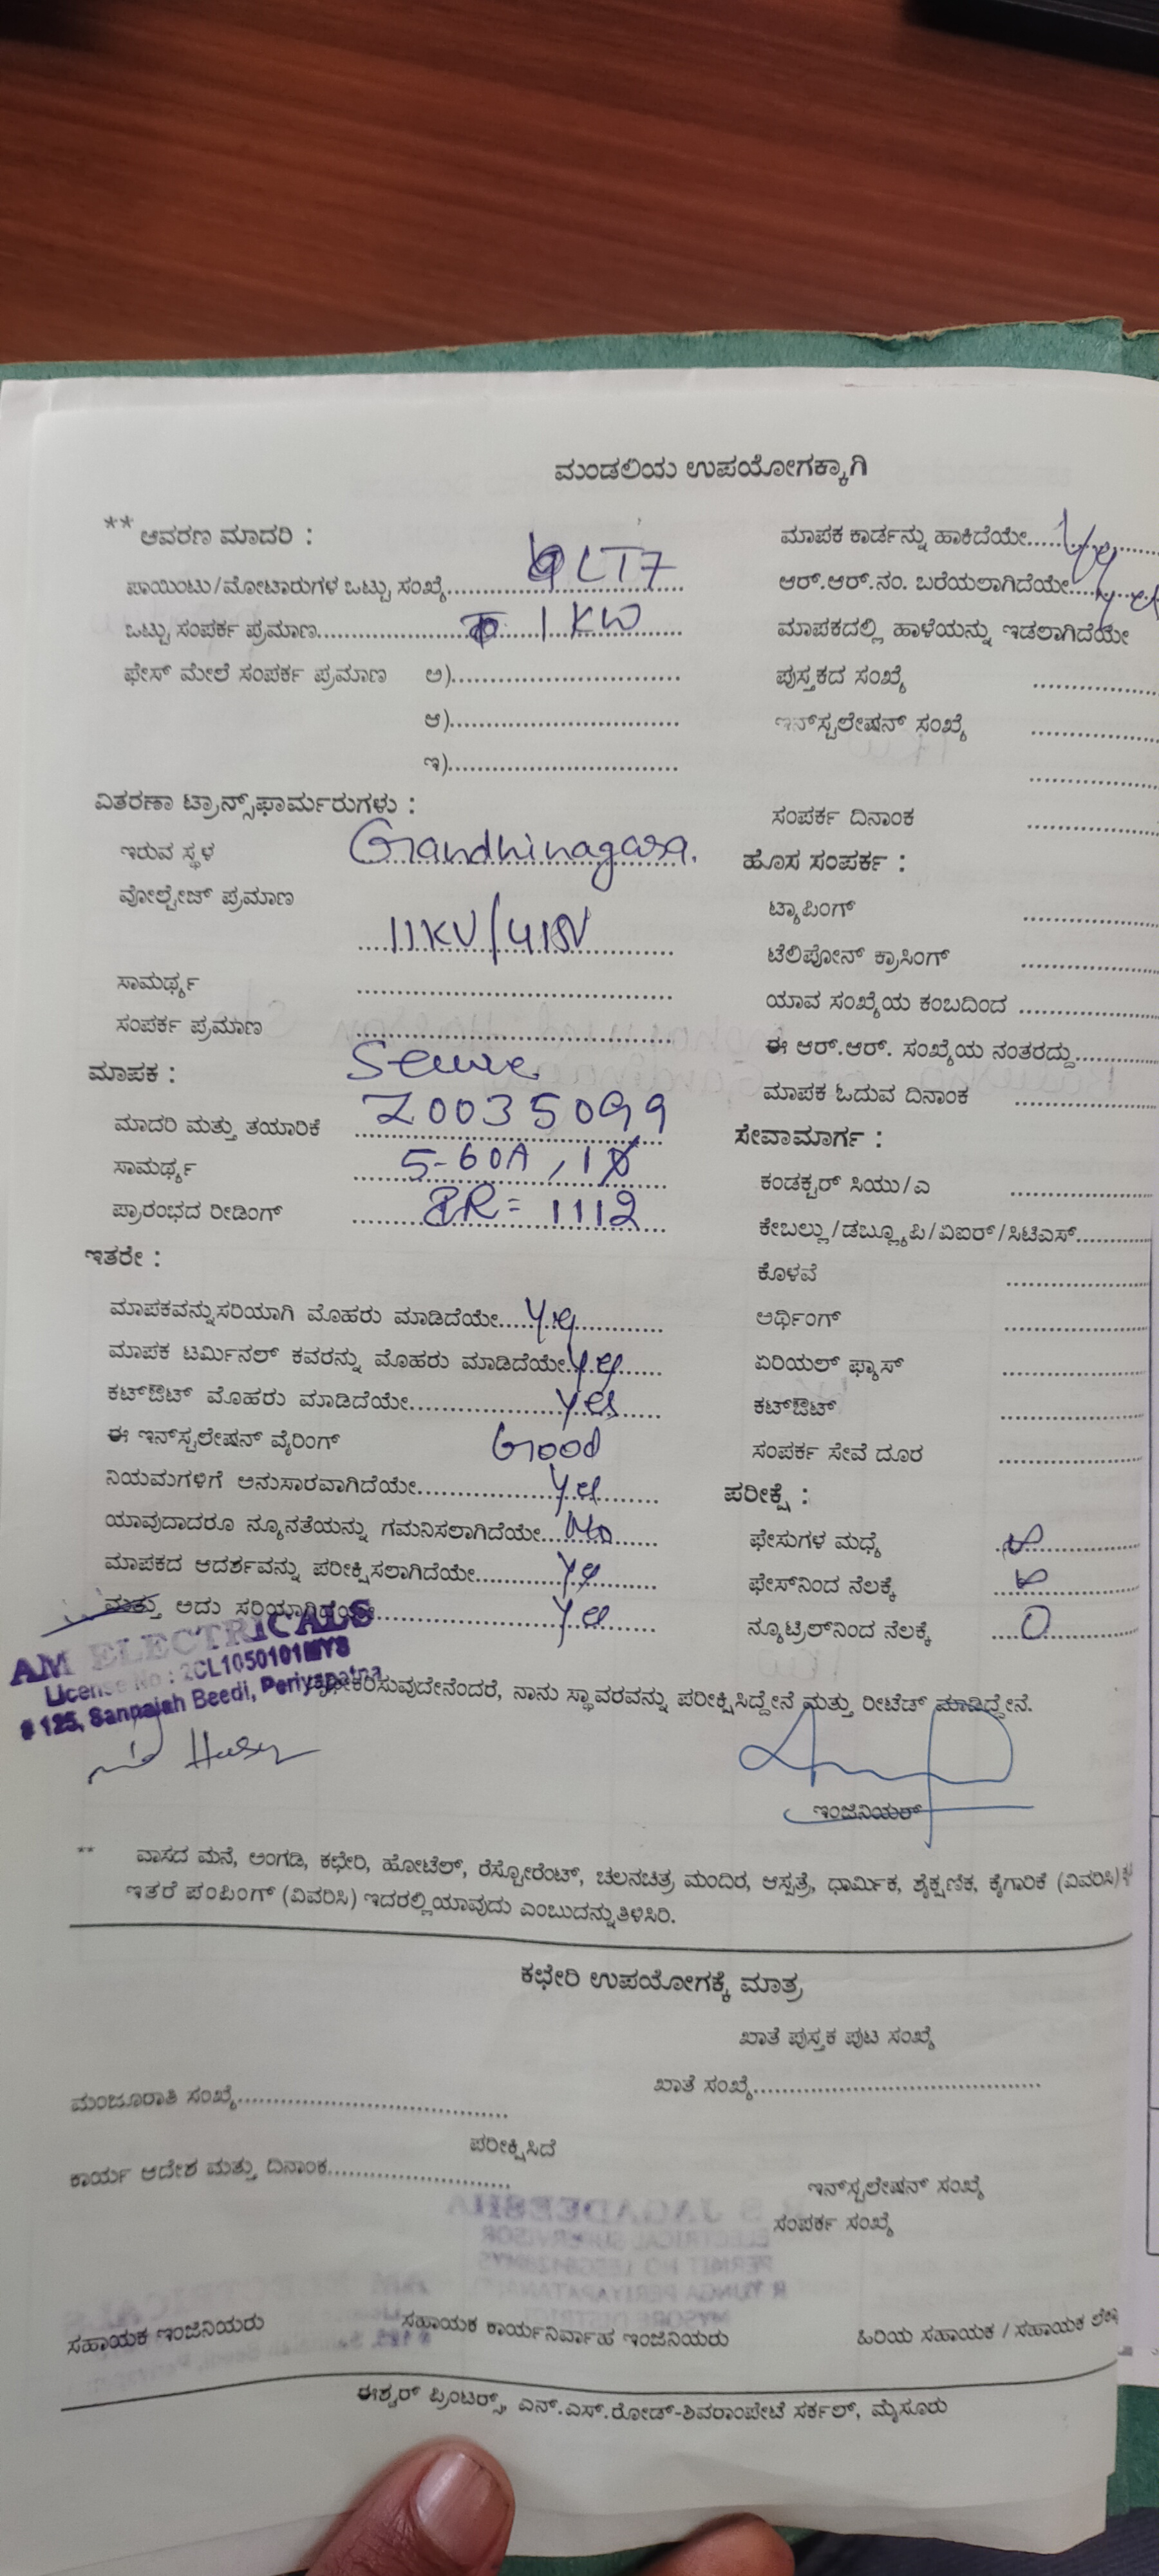 ಮಂಡಲಿಯ ಉಪಯೋಗಕ್ಕಾಗಿ
** ಆವರಣ ಮಾದರಿ :
ಪಾಯಿಂಟು/ಮೋಟಾರುಗಳ ಒಟ್ಟು ಸಂಖ್ಯೆ.......... LT7
ಒಟ್ಟು ಸಂಪರ್ಕ ಪ್ರಮಾಣ.......... 1 KW
ಫೇಸ್ ಮೇಲೆ ಸಂಪರ್ಕ ಪ್ರಮಾಣ ಅ)..........
ಆ)..........
ಇ)..........
ವಿತರಣಾ ಟ್ರಾನ್ಸ್‌ಫಾರ್ಮರುಗಳು :
ಇರುವ ಸ್ಥಳ Gandhinagara.
ವೋಲ್ಟೇಜ್ ಪ್ರಮಾಣ
11KV/415V
ಸಾಮರ್ಥ್ಯ ..........
ಸಂಪರ್ಕ ಪ್ರಮಾಣ ..........
ಮಾಪಕ : Secure
ಮಾದರಿ ಮತ್ತು ತಯಾರಿಕೆ Z0035099
ಸಾಮರ್ಥ್ಯ 5-60A, 1Ø
ಪ್ರಾರಂಭದ ರೀಡಿಂಗ್ IR = 1112
ಇತರೇ :
ಮಾಪಕವನ್ನು ಸರಿಯಾಗಿ ಮೊಹರು ಮಾಡಿದೆಯೇ..... Yes
ಮಾಪಕ ಟರ್ಮಿನಲ್ ಕವರನ್ನು ಮೊಹರು ಮಾಡಿದೆಯೇ Yes
ಕಟ್‌ಔಟ್ ಮೊಹರು ಮಾಡಿದೆಯೇ.......... Yes
ಈ ಇನ್‌ಸ್ಟಲೇಷನ್ ವೈರಿಂಗ್ Good
ನಿಯಮಗಳಿಗೆ ಅನುಸಾರವಾಗಿದೆಯೇ.......... Yes
ಯಾವುದಾದರೂ ನ್ಯೂನತೆಯನ್ನು ಗಮನಿಸಲಾಗಿದೆಯೇ... No
ಮಾಪಕದ ಆದರ್ಶವನ್ನು ಪರೀಕ್ಷಿಸಲಾಗಿದೆಯೇ.......... Yes
ಮತ್ತು ಅದು ಸರಿಯಾಗಿದೆಯೇ.......... Yes
ಮಾಪಕ ಕಾರ್ಡನ್ನು ಹಾಕಿದೆಯೇ..... Yes
ಆರ್.ಆರ್.ನಂ. ಬರೆಯಲಾಗಿದೆಯೇ..... Yes
ಮಾಪಕದಲ್ಲಿ ಹಾಳೆಯನ್ನು ಇಡಲಾಗಿದೆಯೇ
ಪುಸ್ತಕದ ಸಂಖ್ಯೆ ..........
ಇನ್‌ಸ್ಟಲೇಷನ್ ಸಂಖ್ಯೆ ..........
ಸಂಪರ್ಕ ದಿನಾಂಕ ..........
ಹೊಸ ಸಂಪರ್ಕ :
ಟ್ಯಾಪಿಂಗ್ ..........
ಟೆಲಿಪೋನ್ ಕ್ರಾಸಿಂಗ್ ..........
ಯಾವ ಸಂಖ್ಯೆಯ ಕಂಬದಿಂದ ..........
ಈ ಆರ್.ಆರ್. ಸಂಖ್ಯೆಯ ನಂತರದ್ದು..........
ಮಾಪಕ ಓದುವ ದಿನಾಂಕ ..........
ಸೇವಾಮಾರ್ಗ :
ಕಂಡಕ್ಟರ್ ಸಿಯು/ಎ ..........
ಕೇಬಲ್ಲು/ಡಬ್ಲ್ಯೂಪಿ/ವಿಐರ್/ಸಿಟಿಎಸ್..........
ಕೊಳವೆ ..........
ಅರ್ಥಿಂಗ್ ..........
ಏರಿಯಲ್ ಫ್ಯೂಸ್ ..........
ಕಟ್‌ಔಟ್ ..........
ಸಂಪರ್ಕ ಸೇವೆ ದೂರ ..........
ಪರೀಕ್ಷೆ :
ಫೇಸುಗಳ ಮಧ್ಯೆ ∞
ಫೇಸ್‌ನಿಂದ ನೆಲಕ್ಕೆ ∞
ನ್ಯೂಟ್ರಲ್‌ನಿಂದ ನೆಲಕ್ಕೆ ..... 0
AM ELECTRICALS
License No : 2CL1050101MYS
# 125, Sannaiah Beedi, Periyapatna
ನಾನು ಸ್ಥಾವರವನ್ನು ಪರೀಕ್ಷಿಸಿದ್ದೇನೆ ಮತ್ತು ರೀಟೆಡ್ ಮಾಡಿದ್ದೇನೆ.
ಇಂಜಿನಿಯರ್
** ವಾಸದ ಮನೆ, ಅಂಗಡಿ, ಕಛೇರಿ, ಹೋಟೆಲ್, ರೆಸ್ಟೋರೆಂಟ್, ಚಲನಚಿತ್ರ ಮಂದಿರ, ಆಸ್ಪತ್ರೆ, ಧಾರ್ಮಿಕ, ಶೈಕ್ಷಣಿಕ, ಕೈಗಾರಿಕೆ (ವಿವರಿಸಿ)
ಇತರೆ ಪಂಪಿಂಗ್ (ವಿವರಿಸಿ) ಇದರಲ್ಲಿ ಯಾವುದು ಎಂಬುದನ್ನು ತಿಳಿಸಿರಿ.
ಕಛೇರಿ ಉಪಯೋಗಕ್ಕೆ ಮಾತ್ರ
ಖಾತೆ ಪುಸ್ತಕ ಪುಟ ಸಂಖ್ಯೆ
ಮಂಜೂರಾತಿ ಸಂಖ್ಯೆ.......... ಖಾತೆ ಸಂಖ್ಯೆ..........
ಪರೀಕ್ಷಿಸಿದೆ
ಕಾರ್ಯ ಆದೇಶ ಮತ್ತು ದಿನಾಂಕ..........
ಇನ್‌ಸ್ಟಲೇಷನ್ ಸಂಖ್ಯೆ
ಸಂಪರ್ಕ ಸಂಖ್ಯೆ
ಸಹಾಯಕ ಇಂಜಿನಿಯರು ಸಹಾಯಕ ಕಾರ್ಯನಿರ್ವಾಹ ಇಂಜಿನಿಯರು ಹಿರಿಯ ಸಹಾಯಕ / ಸಹಾಯಕ
ಈಶ್ವರ್ ಪ್ರಿಂಟರ್ಸ್, ಎನ್.ಎಸ್.ರೋಡ್-ಶಿವರಾಂಪೇಟೆ ಸರ್ಕಲ್, ಮೈಸೂರು